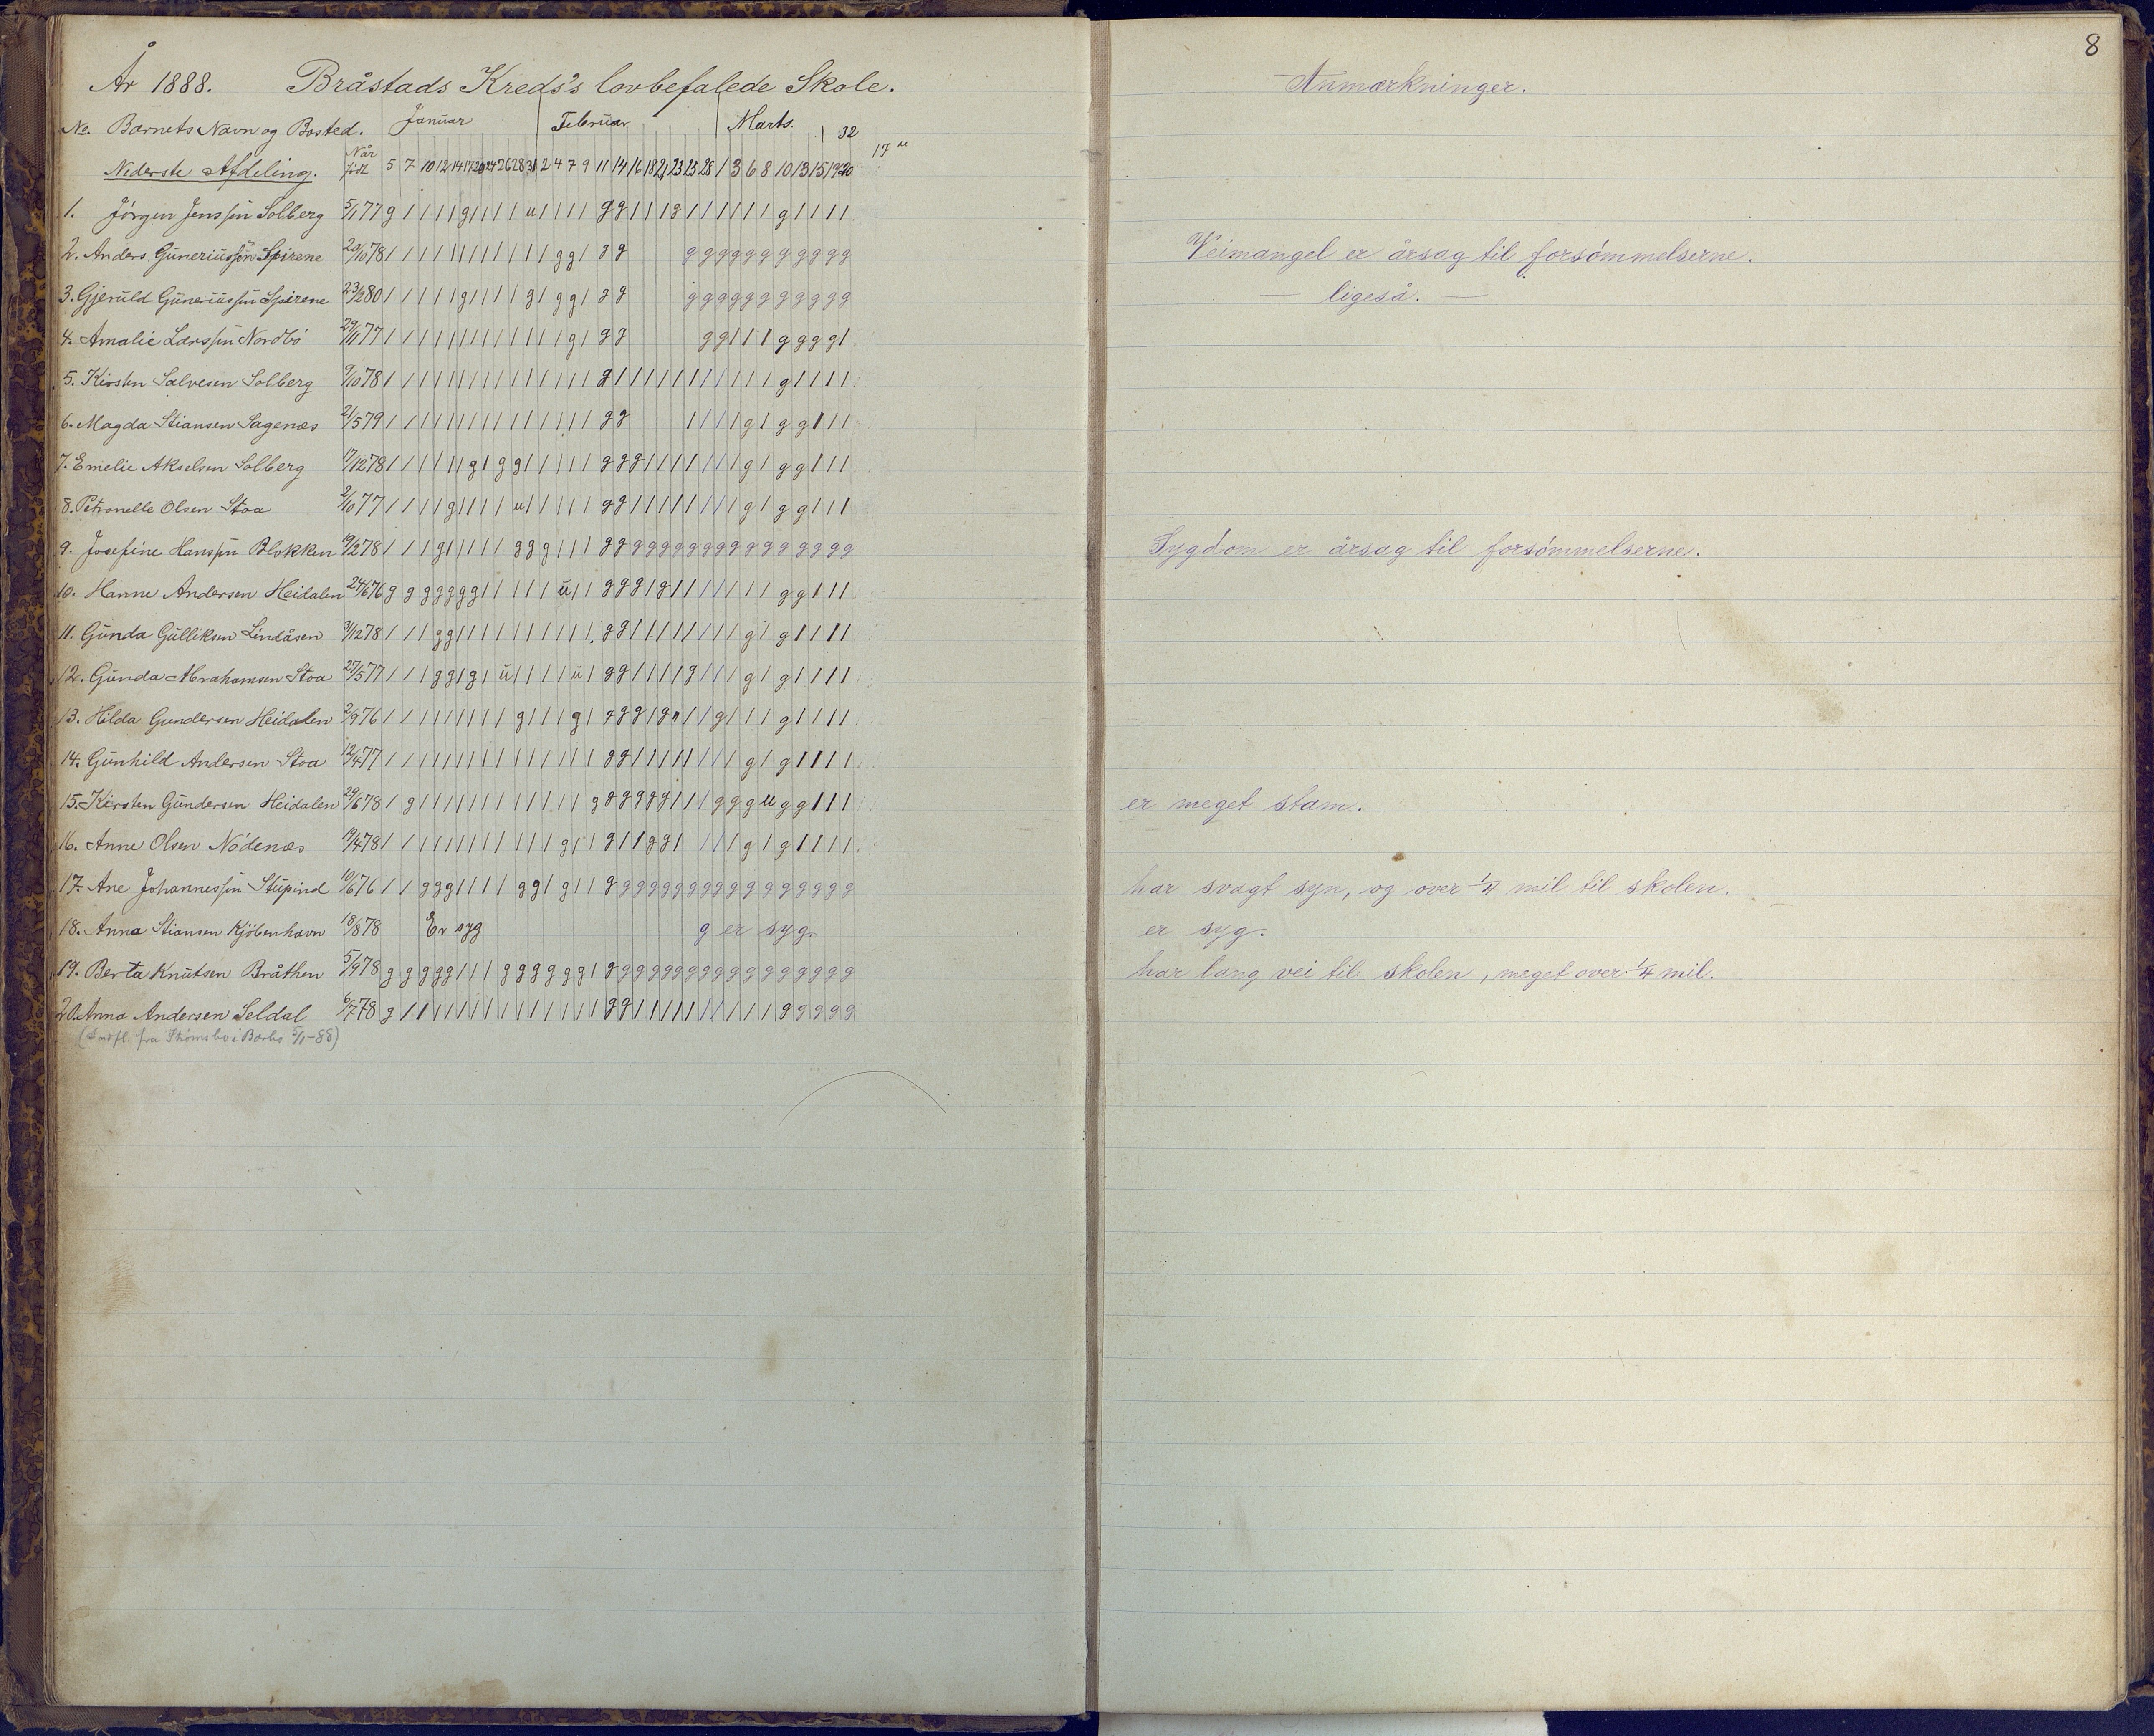 8
År 1888. Bråstads Kreds's lovbefalede Skole. Anmærkninger.
No. Barnets Navn og Bosted. Januar Februar Marts. 32
Nederste Afdeling. Når født 5 7 10 12 14 17 20 24 26 28 31 2 4 7 9 11 14 16 18 21 23 25 28 1 3 6 8 10 13 15 19 20 17
1. Jørgen Jenssøn Solberg 5/1 77
2. Anders Guneriussøn Spirene 20/10 78 Veimangel er årsag til forsømmelserne.
3. Gjeruld Guneriussøn Spirene 23/2 80 — ligeså. —
4. Amalie Larssøn Nordbø 29/11 77
5. Kirsten Salvesen Solberg 9/10 78
6. Magda Stiansen Sagenæs 21/5 79
7. Emelie Akselsen Solberg 17/12 78
8. Petronelle Olsen Stoa 2/10 77
9. Josefine Hanssøn Blokken 19/2 78 Sygdom er årsag til forsømmelserne.
10. Hanne Andersen Heidalen 24/6 76
11. Gunda Gulliksen Lindåsen 31/12 78
12. Gunda Abrahamsen Stoa 27/5 77
13. Hilda Gundersen Heidalen 2/9 76
14. Gunhild Andersen Stoa 12/4 77
15. Kirsten Gundersen Heidalen 29/6 78 er meget stam.
16. Anne Olsen Nødenæs 19/4 78
17. Ane Johannessøn Stupind 10/6 76 har svagt syn, og over 1/4 mil til skolen.
18. Anna Stiansen Kjøbenhavn 18/8 78 Er syg g er syg. er syg.
19. Berta Knutsen Bråthen 5/9 78 har lang vei til skolen, meget over 1/4 mil.
20. Anna Andersen Seldal 6/7 78
(Indfl. fra Strømsbo i Barbo 5/1-88)